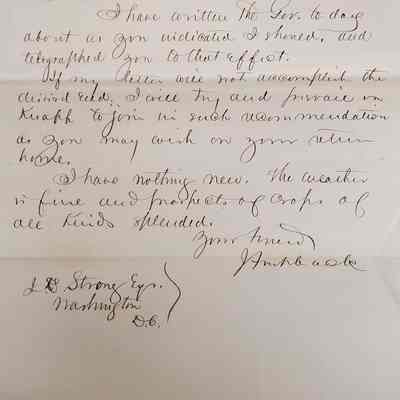 I have written the Gov. to day
about as you indicated I should, and
telegraphed you to that effect.
If my letter will not accomplish the
desired end, I will try and prevail on
Knapp to join in such recommendation
as you may wish on your return
home.
I have nothing new. The weather
is fine and prospects of crops of
all kinds splendid.
Your friend
Strong Esq.
Washington
D.C.